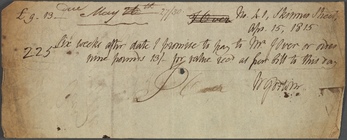 £9. 13. Due May 28th 27/30 No. 41, Skinner Street,
Apr. 15, 1815
225 Six weeks after date I promise to pay to Mr Glover or order
nine pounds 13/- for value recd as per bill to this day.
W Godwin